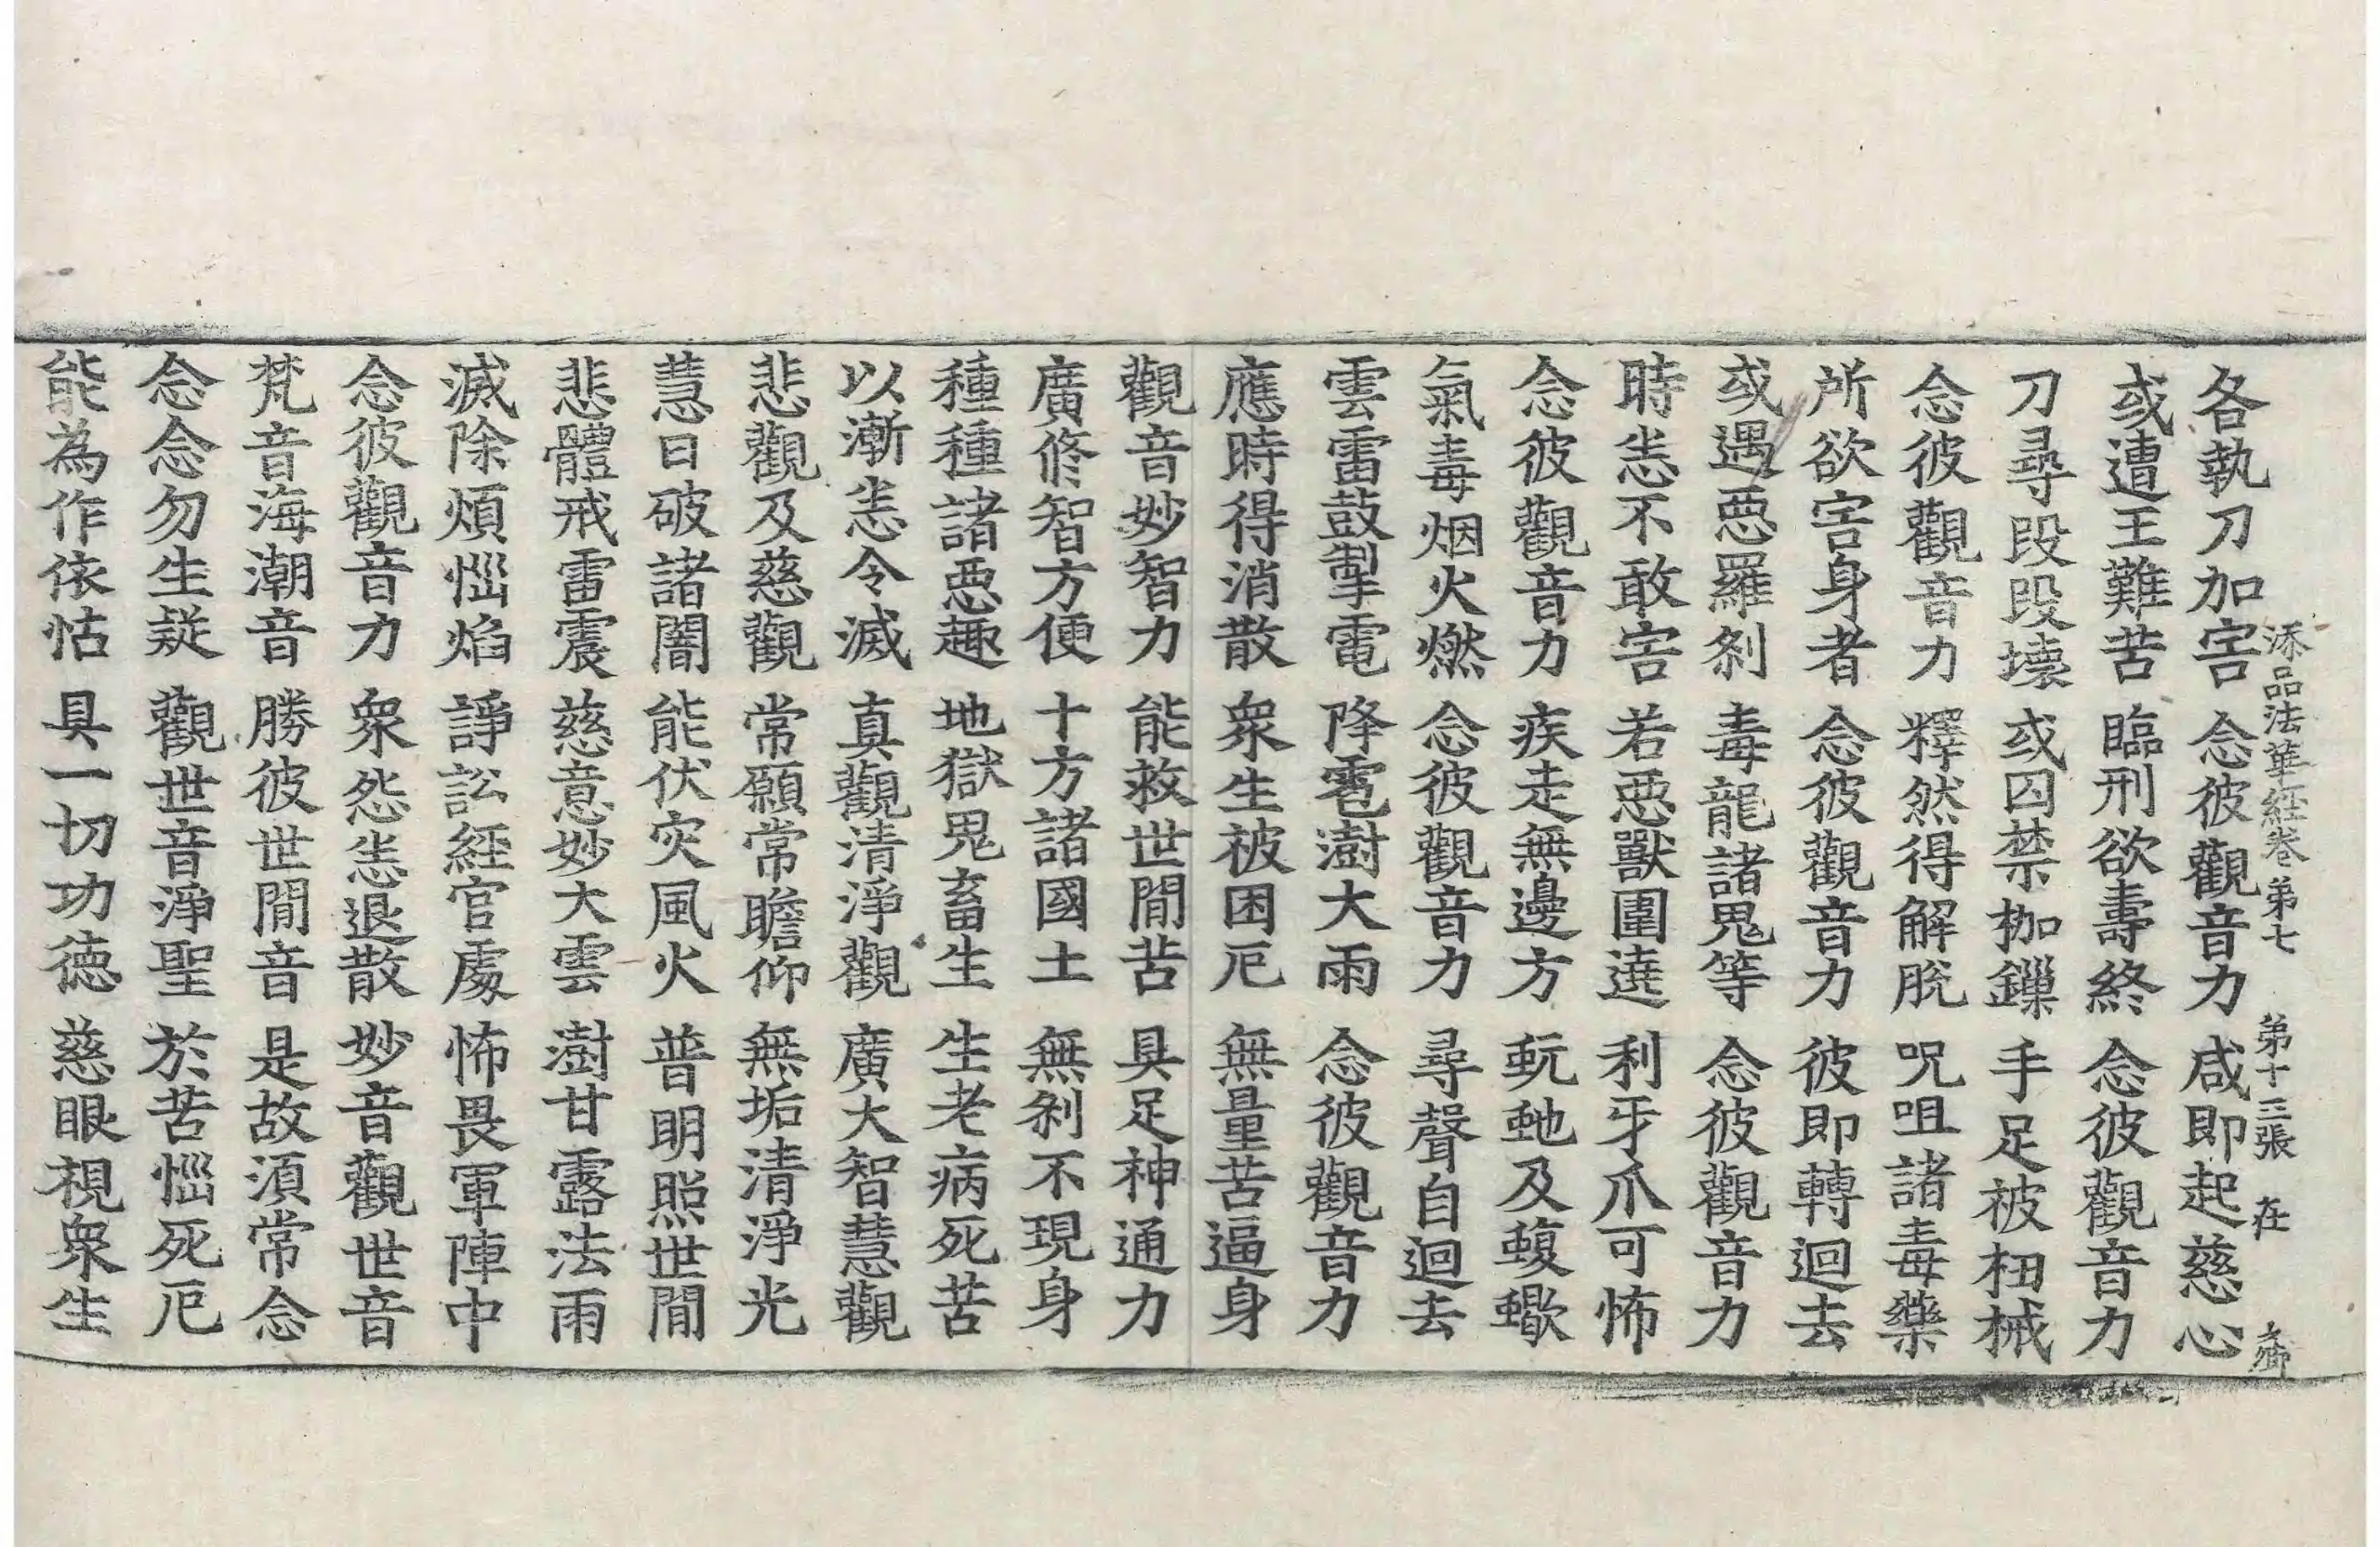 添品法華經卷第七 第十三張 在
各執刀加害 念彼觀音力 咸即起慈心
或遭王難苦 臨刑欲壽終 念彼觀音力
刀尋段段壞 或囚禁枷鏁 手足被杻械
念彼觀音力 釋然得解脫 呪咀諸毒藥
所欲害身者 念彼觀音力 彼即轉迴去
或遇惡羅剎 毒龍諸鬼等 念彼觀音力
時恙不敢害 若惡獸圍遶 利牙爪可怖
念彼觀音力 疾走無邊方 蚖虵及蝮蠍
氣毒烟火燃 念彼觀音力 尋聲自迴去
雲雷鼓掣電 降雹澍大雨 念彼觀音力
應時得消散 衆生被困厄 無量苦逼身
觀音妙智力 能救世間苦 具足神通力
廣修智方便 十方諸國土 無剎不現身
種種諸惡趣 地獄鬼畜生 生老病死苦
以漸恙令滅 真觀清淨觀 廣大智慧觀
悲觀及慈觀 常願常瞻仰 無垢清淨光
慧日破諸闇 能伏灾風火 普明照世間
悲體戒雷震 慈意妙大雲 澍甘露法雨
滅除煩惱焰 諍訟經官處 怖畏軍陣中
念彼觀音力 衆怨恙退散 妙音觀世音
梵音海潮音 勝彼世間音 是故須常念
念念勿生疑 觀世音淨聖 於苦惱死厄
能為作依怙 具一切功德 慈眼視衆生